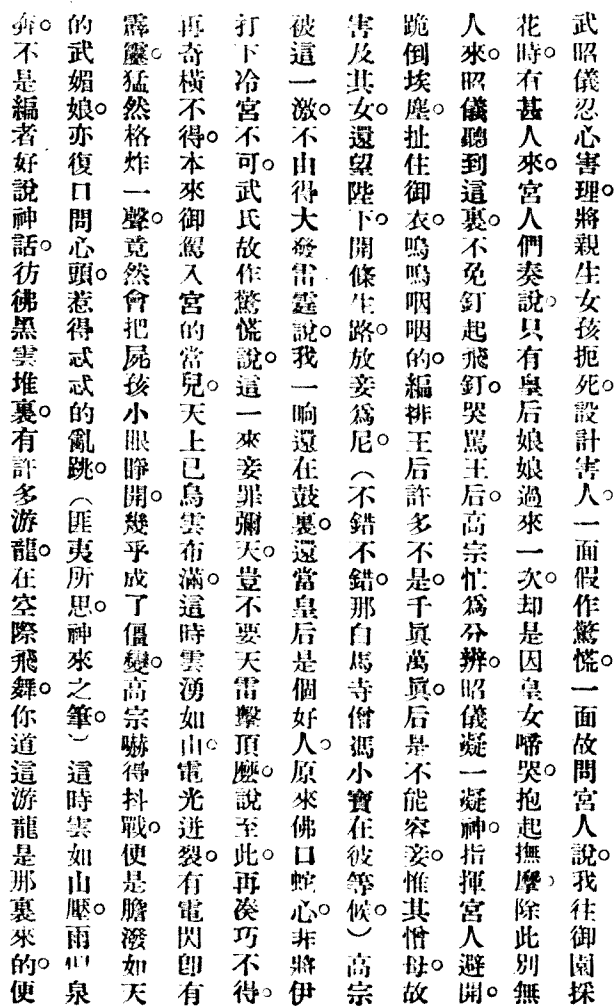 武昭儀忍心害理。將親生女孩扼死。設計害人。一面假作驚慌。一面故問宮人說。我往御園採
花時。有甚人來。宮人們奏說。只有皇后娘娘過來一次。却是因皇女啼哭。抱起撫摩。除此別無
人來。昭儀聽到這裏。不免釘起飛釘。哭駡王后。高宗忙爲分辨。昭儀凝一凝神。指揮宮人避開。
跪倒埃塵。扯住御衣。嗚嗚咽咽的。編排王后許多不是。千眞萬眞。后是不能容妾。惟其憎母。故
害及其女。還望陛下。開條生路。放妾爲尼。（不錯不錯那白馬寺僧馮小寶在彼等候。）高宗
被這一激。不由得大發雷霆。說。我一晌還在鼓裏。還當皇后是個好人。原來佛口蛇心。非將伊
打下冷宮不可。武氏故作驚慌。說。這一來妾罪彌天。豈不要天雷擊頂麼。說至此。再湊巧不得。
再奇橫不得。本來御駕入宮的當兒。天上已烏雲布滿。這時雲湧如山。電光迸裂。有電閃卽有
霹靂。猛然格炸一聲。竟然會把屍孩小眼睜開。幾乎成了僵變。高宗嚇得抖戰。便是膽潑如天
的武媚娘。亦復口問心頭。惹得忒忒的亂跳。（匪夷所思神來之筆。）這時雲如山壓。雨似泉
奔。不是編者好說神話。彷彿黑雲堆裏。有許多游龍。在空際飛舞。你道這游龍是那裏來的。便